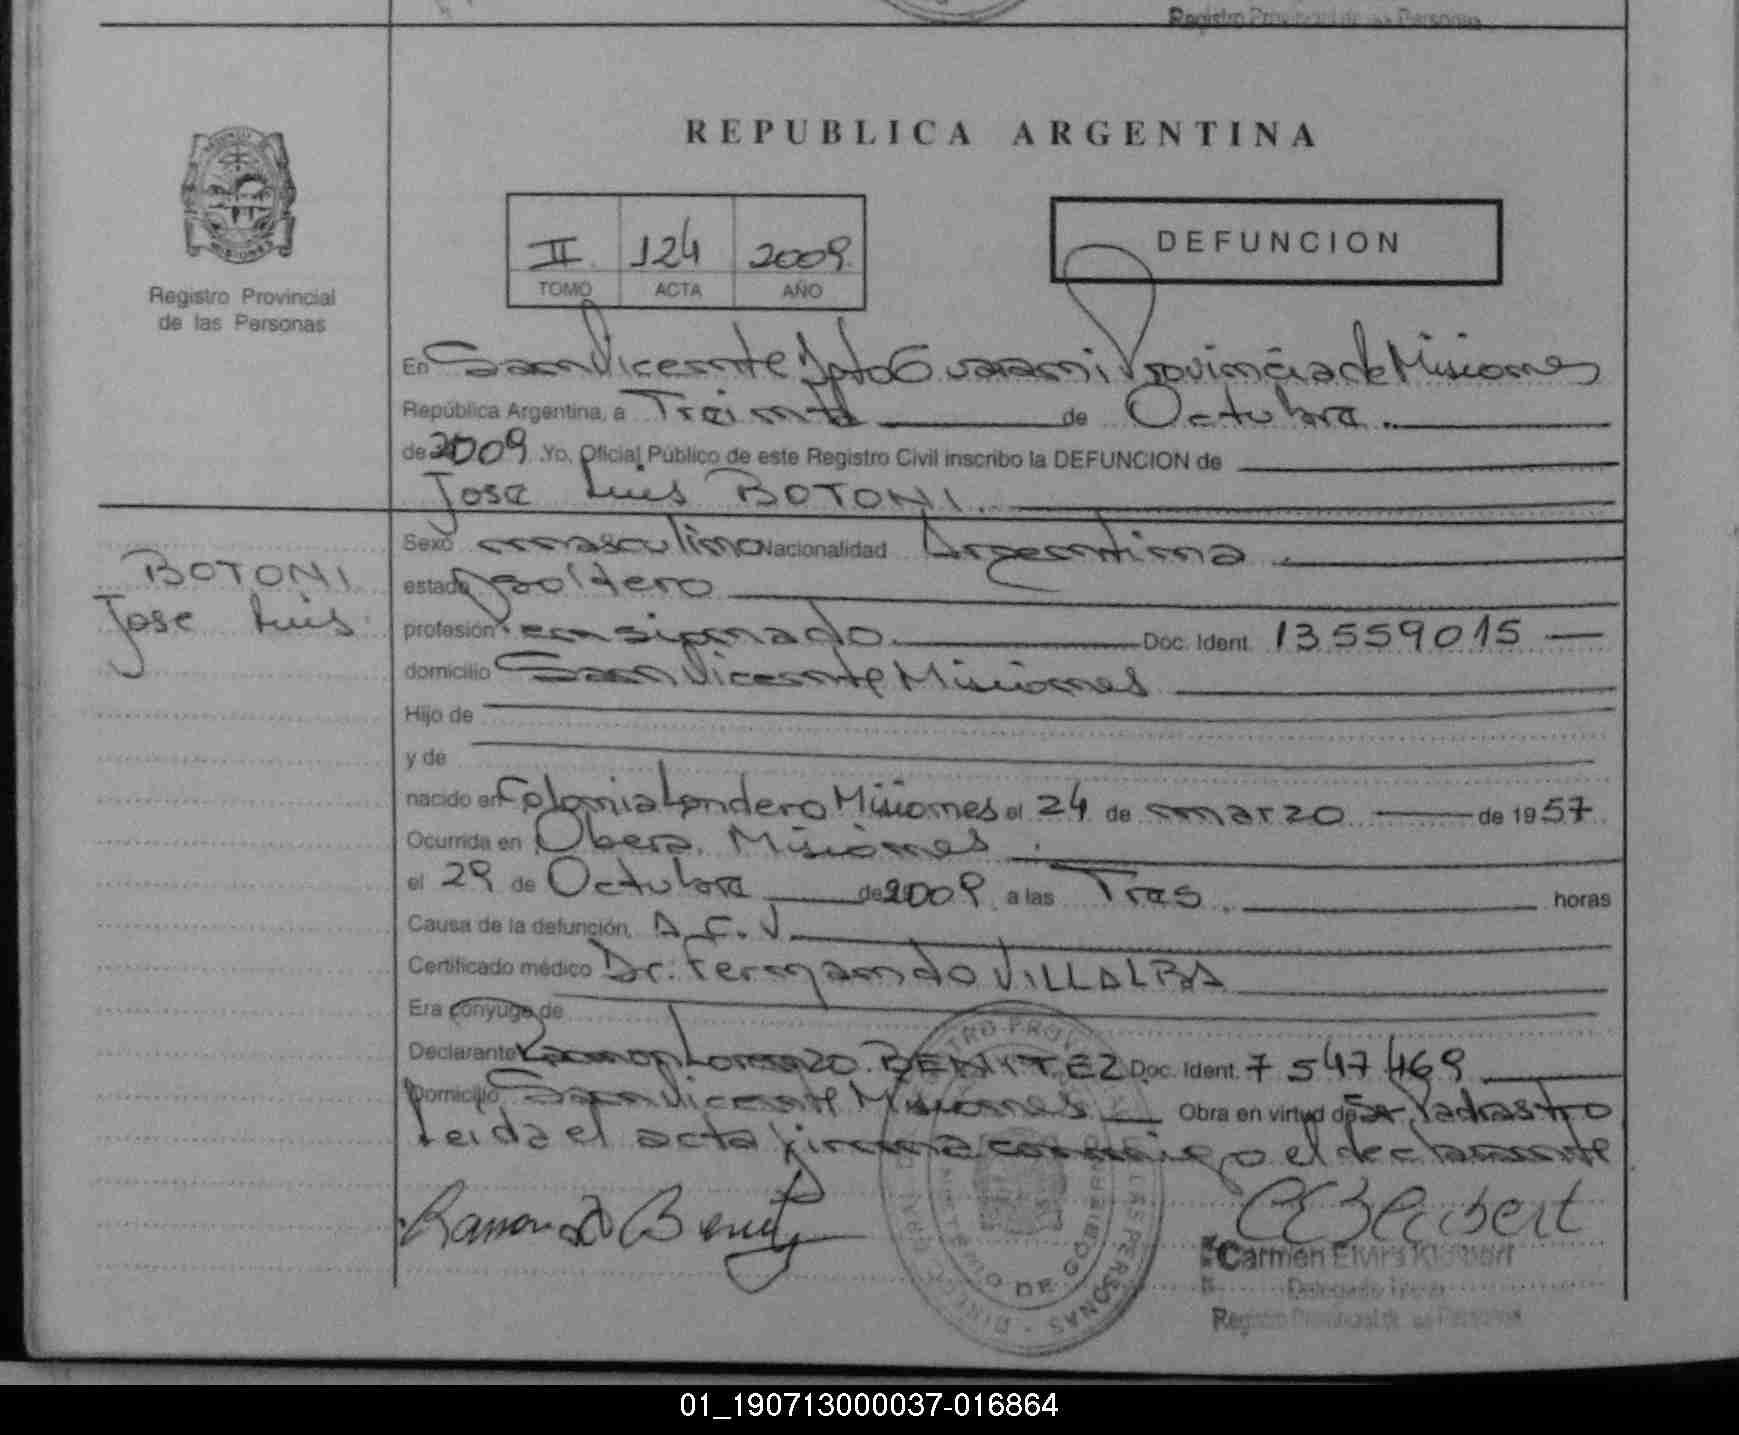 Registro Provincial de las Personas
REPUBLICA ARGENTINA
Registro Provincial
de las Personas
II 124 2009
TOMO ACTA AÑO
DEFUNCION
En San Vicente Dpto Guarani Provincia de Misiones
República Argentina, a Treinta de Octubre.
de 2009 Yo, Oficial Público de este Registro Civil inscribo la DEFUNCION de
Jose Luis BOTONI.
BOTONI
Jose Luis
Sexo masculino Nacionalidad Argentina
estado soltero
profesión Pensionado Doc. Ident. 13559015
domicilio San Vicente Misiones
Hijo de
y de
nacido en Colonia Londero Misiones el 24 de marzo de 1957
Ocurrida en Obera. Misiones
el 29 de Octubre de 2009 a las Tres horas
Causa de la defunción, A.C.V.
Certificado médico Dr. Fernando VILLALBA
Era conyuge de
Declarante Ramon Lorenzo BENITEZ Doc. Ident. 7547469
Domicilio San Vicente Misiones Obra en virtud de Ser Padrastro
Leida el acta firma conmigo el declarante
Ramon Benitez
Carmen Elvira
Registro Provincial de las Personas
01_190713000037-016864